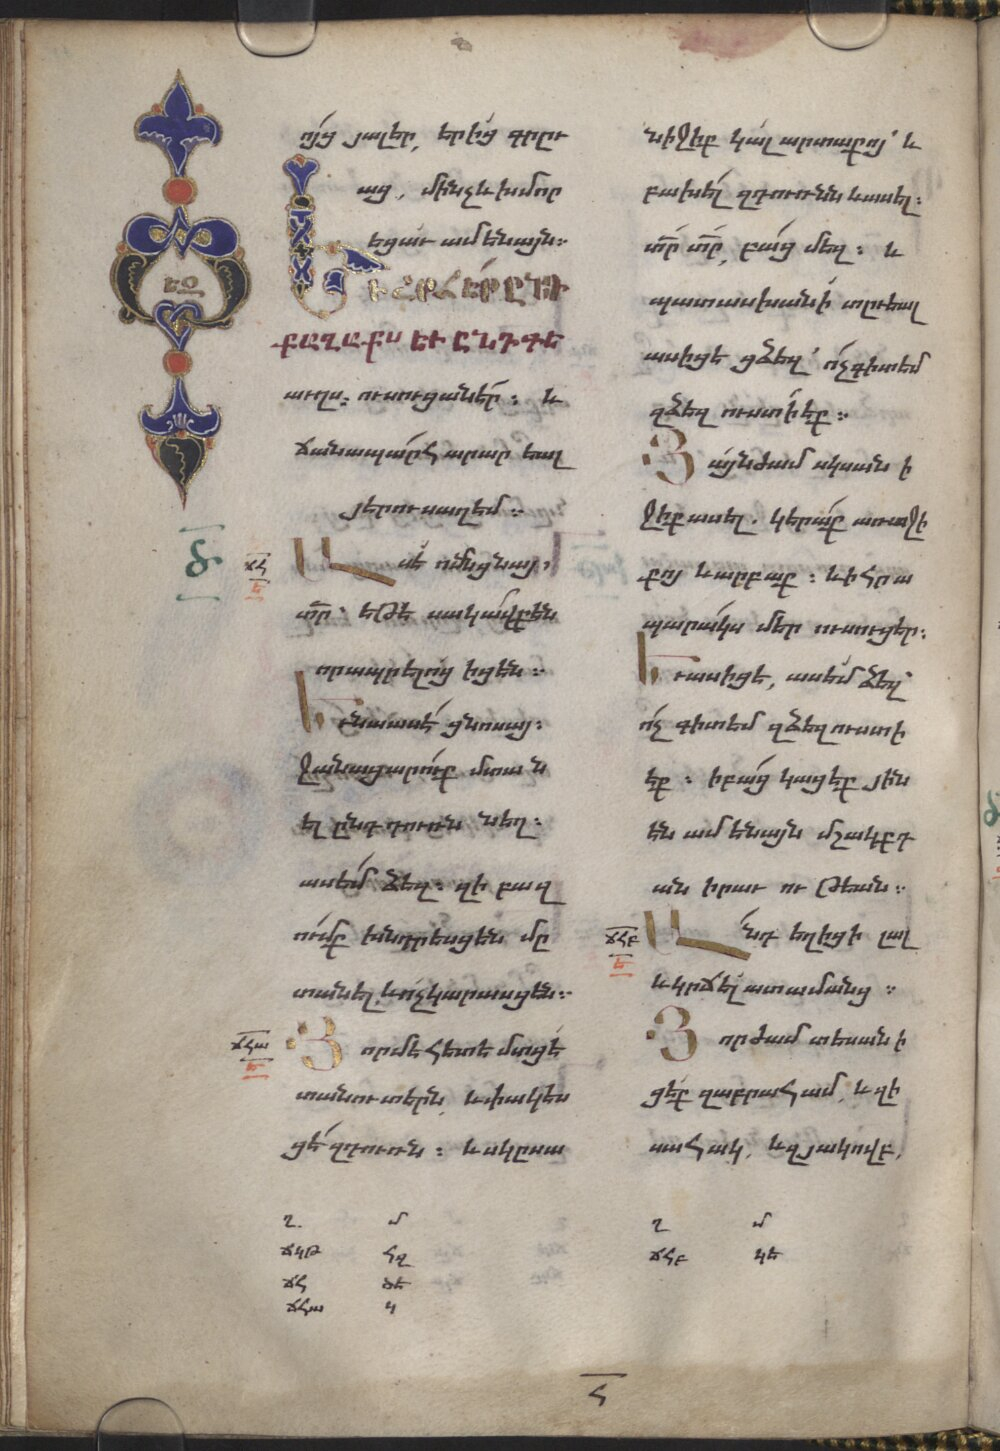 եօ
ոյց յալեր, երից գրըւ
աց, մինչև խմոր
եցաւ ամենայն։
ԵՒ ՇՐՋԷՐ ԸՆԴ
ՔԱՂԱՔՍ ԵՒ ԸՆԴԳԵ
աւղս։ ուսուցանէր։ և
ճանապարհ արար եալ
յերուսաղեմ։
ճհ
ե
Ասէ ոմն ցնայ,
տր՝ եթե սակաւք են
որ ապրելոց իցեն։
Եւ նա ասէ ցնոսայ։
Ջանացարուք մտան
ել ընդ դուռն նեղ։
ասեմ ձեզ։ զի բազ
ումք խնդրեսցեն մը
տանել և ոչ կարասցեն։
ճհա
ե
Յորմե հետե մտցէ
տանուտերն, և փակես
ցէ զդուռն։ և սկըսա
նիջիք կալ արտաքոյ՝ և
բախել զդուռնն և ասել։
տր տր, բաց մեզ։ և
պատասխանի տըւեալ
ասիցե ցձեզ՝ ոչ գիտեմ
զձեզ ուստի էք։
Յայնժամ սկսան ի
ջիք ասել. կերաք առաջի
քոյ և արբաք։ և ի հրա
պարակս մեր ուսուցեր։
Եւ ասիցե, ասեմ ձեզ՝
ոչ գիտեմ զձեզ ուստի
եք։ ի բաց կացէք յին
են ամենայն մշակքդ
անիրաւութեան։
ճհբ
ե
Անդ եղիցի լալ
և կրճել ատամանց։
Յորժամ տեսանի
ցեք զաբրահամ, և զի
սահակ, և զյակովբ,
Ղ Մ
ճկթ հզ
ճհ ծե
ճհա կ
Ղ Մ
ճհբ կե
հ